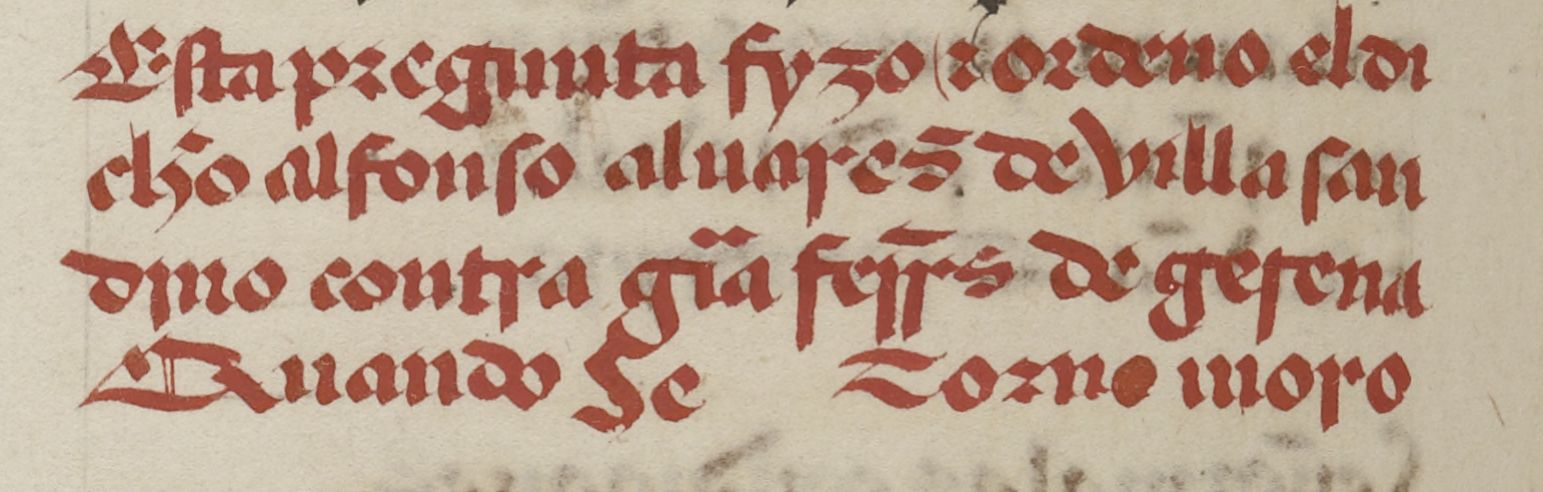 Esta pregunta fyzo (⁊ ordeno el di
cħo alfonso aluares̄ de villa san
dino contra gr̃a ferrs̄ de gerena
Quando Se Torno moro